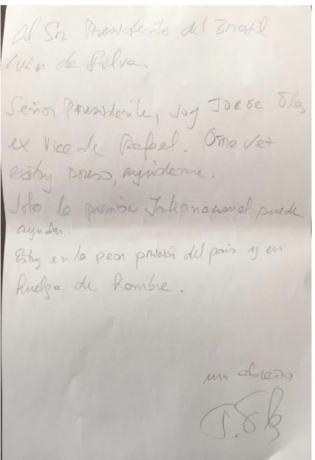 Al Sr Presidente del Brasil
Lula da Silva.
Señor Presidente, soy Jorge Glas
ex Vice de Rafael. Otra vez
estoy preso, ayúdeme.
Solo la presión Internacional puede
ayudar.
Estoy en la peor prisión del país y en
huelga de hambre.
un abrazo
J. Glas